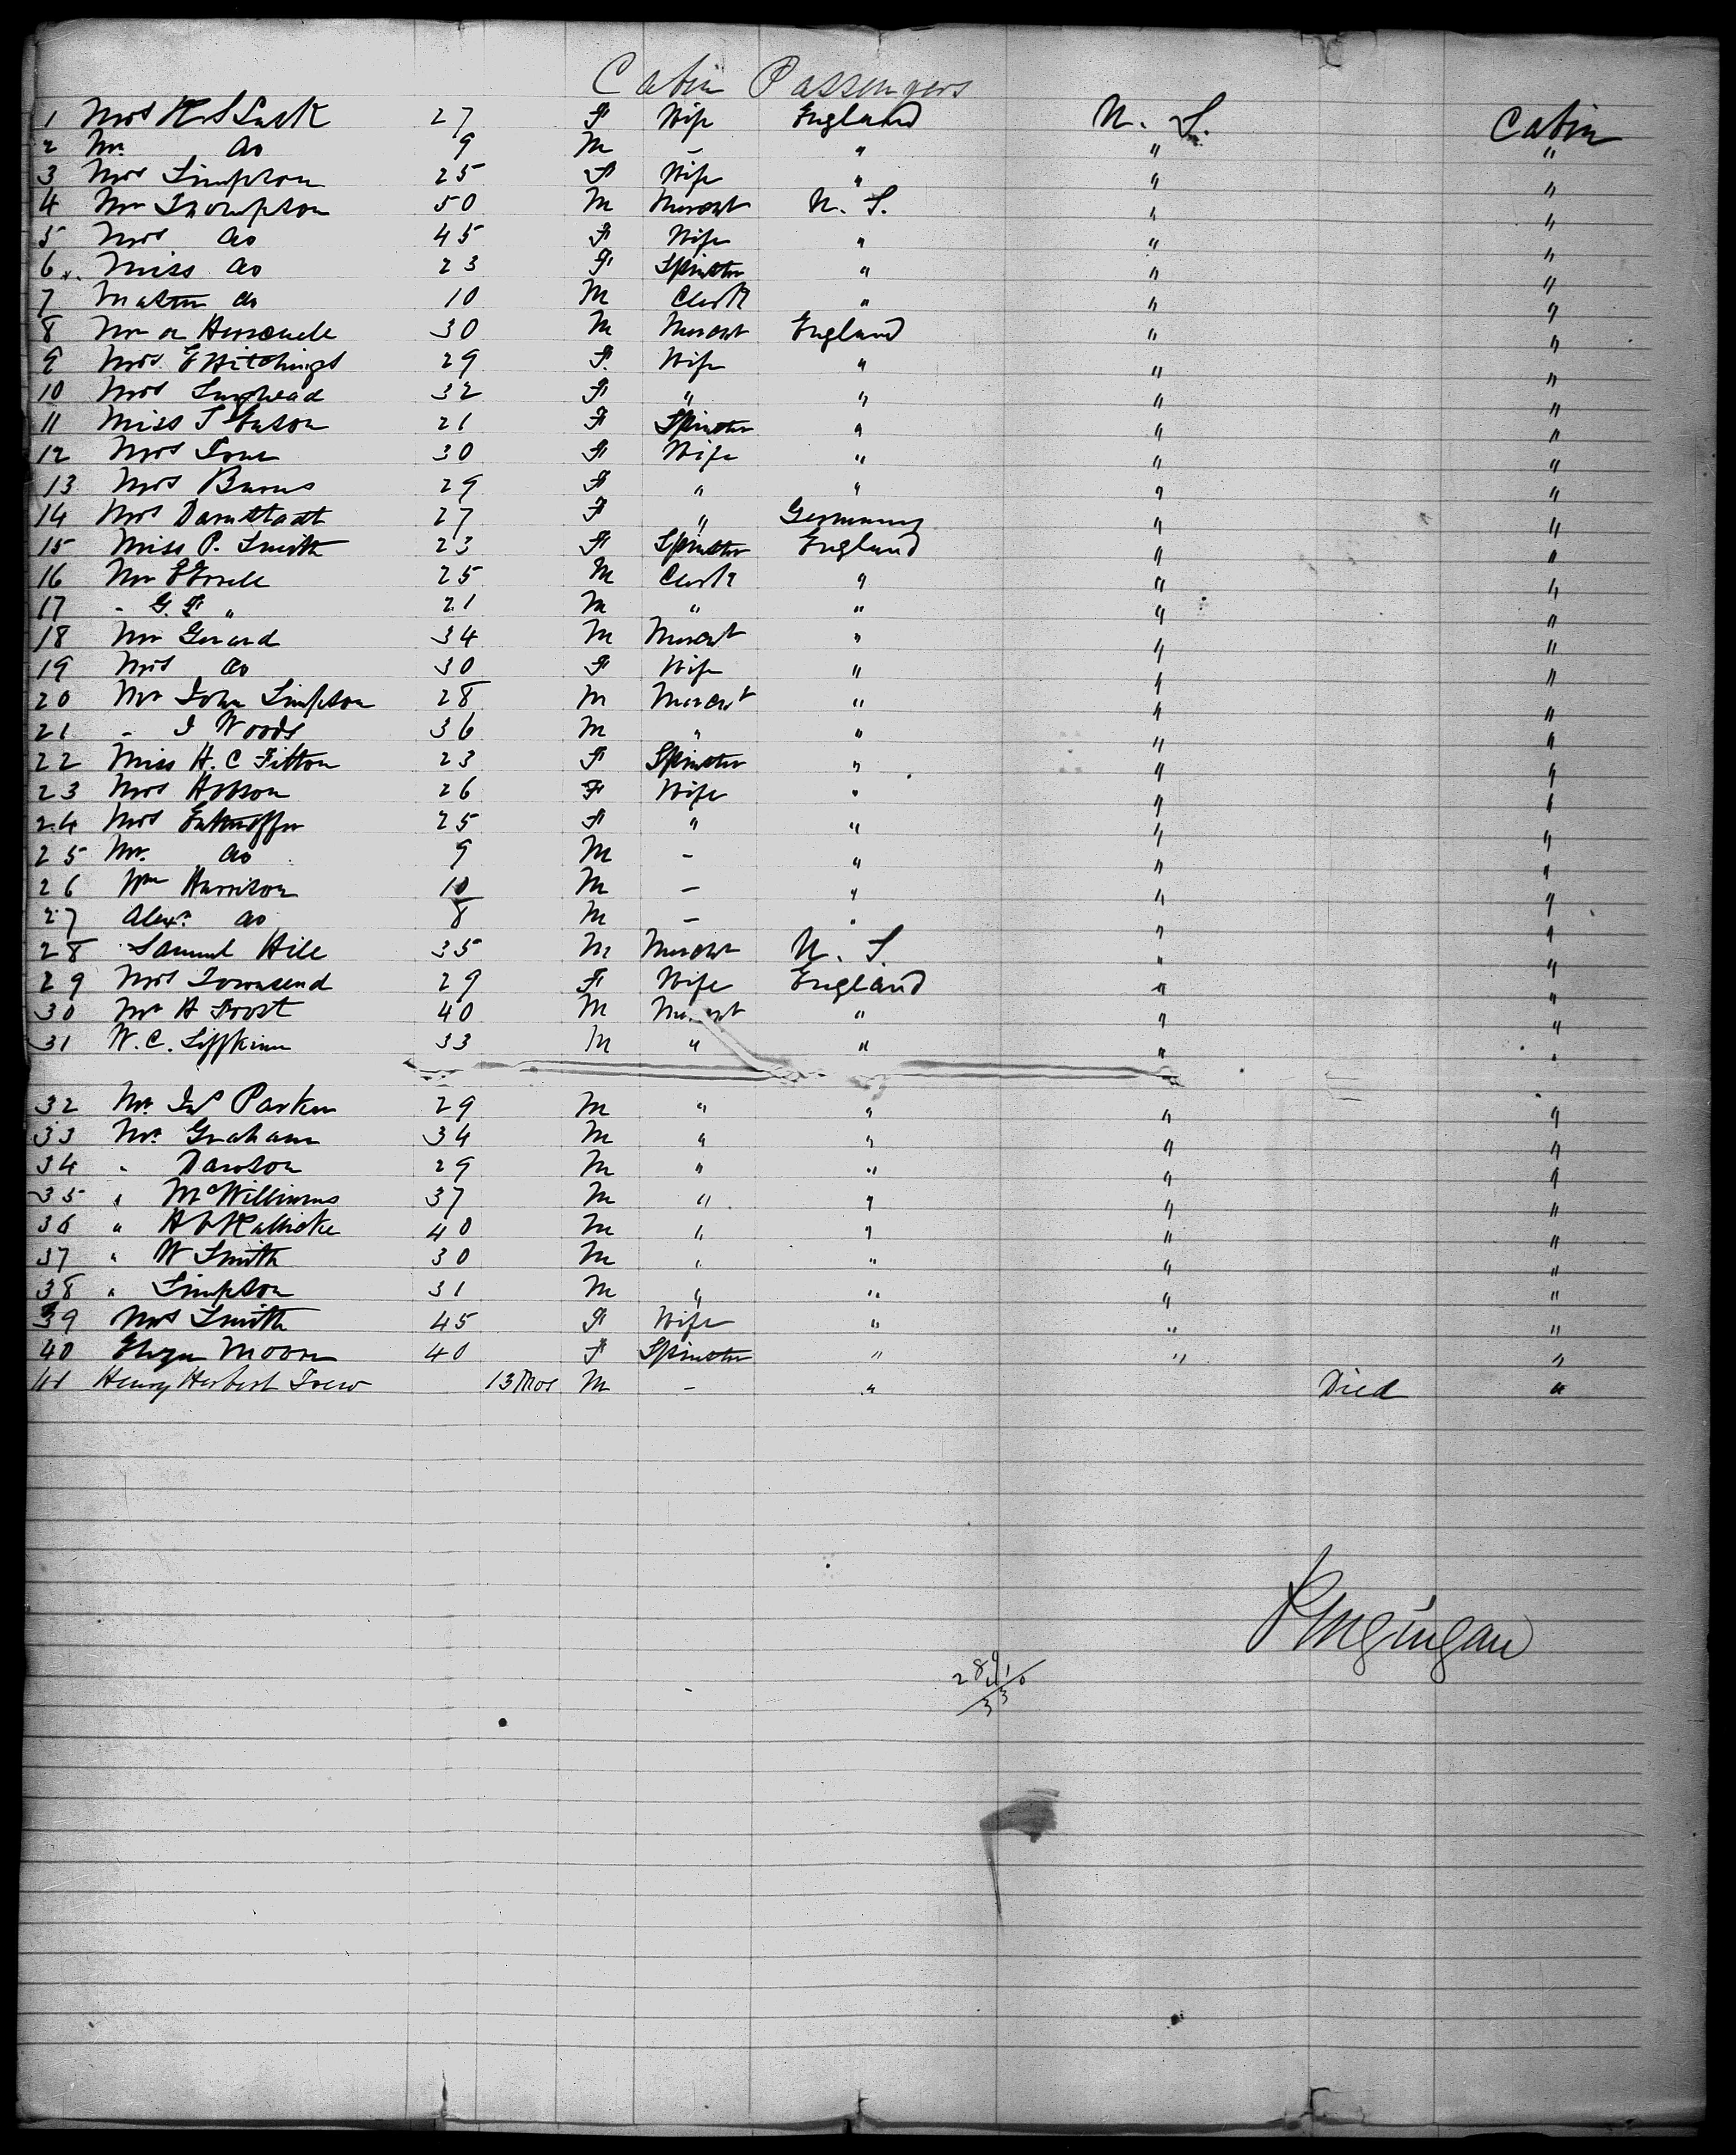 Cabin Passengers
1 Mrs Lusk 27 F Wife England U. S. Cabin
2 Mr. do 9 M - " " "
3 Mrs Simpson 25 F Wife " " "
4 Mr Thompson 50 M Mercht U. S. " "
5 Mrs do 45 F Wife " " "
6 x. Miss do 23 F Spinster " " "
7 Master do 10 M Clerk " " "
8 Mr 30 M Mercht England " "
9 Mrs E Hitchings 29 F. Wife " " "
10 Mrs 32 F " " " "
11 Miss J Eason 21 F Spinster " " "
12 Mrs 30 F Wife " " "
13 Mrs Burns 29 F " " " "
14 Mrs Darmstadt 27 F " Germany " "
15 Miss P. Smith 23 F Spinster England " "
16 Mr 25 M Clerk " " "
17 - G. F " 21 M " " " "
18 Mr Gerard 34 M Mercht " " "
19 Mrs do 30 F Wife " " "
20 Mr John Simpson 28 M Mercht " " "
21 - J Woods 36 M " " " "
22 Miss H. C Fitton 23 F Spinster " " "
23 Mrs Hobson 26 F Wife " " "
24 Mrs 25 F " " " "
25 Mr. do 9 M - " " "
26 Wm Harrison 10 M - " " "
27 Alexr. do 8 M - " " "
28 Samuel Hill 35 M Mercht U. S. " "
29 Mrs Townsend 29 F Wife England " "
30 Mr H Frost 40 M Mercht " " "
31 W. C. Siffkin 33 M " " " "
32 Mr. Jno Parker 29 M " " " "
33 Mr. Graham 34 M " " " "
34 " Dawson 29 M " " " "
35 " McWilliams 37 M " " " "
36 " 40 M " " " "
37 " W Smith 30 M " " " "
38 " Simpson 31 M " " " "
39 Mrs Smith 45 F Wife " " "
40 Moore 40 F Spinster " " "
41 Henry Herbert Trew 13 Mos M - " Died "